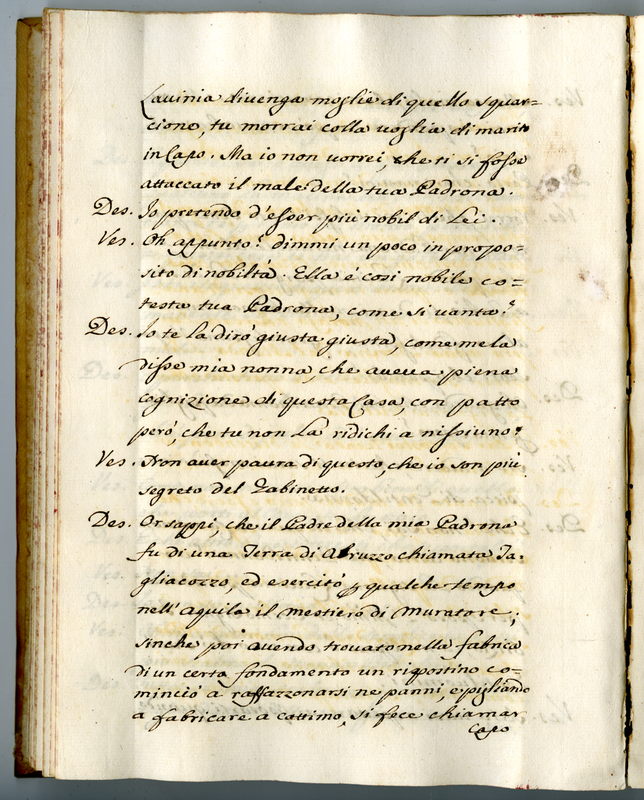 Lavinia divenga moglie di quello squar=
cione, tu morrai colla voglia di marito
in Capo. Ma io non vorrei, che ti si fosse
attaccato il male della tua Padrona.
Des. Io pretendo d'esser più nobil di Lei.
Ves. Oh appunto? dimmi un poco in propo=
sito di nobiltà. Ella è così nobile co=
testa tua Padrona, come si vanta?
Des. Io te la dirò giusta giusta, come me la
disse mia nonna, che aveva piena
cognizione di questa Casa, con patto
però, che tu non La ridichi a nissiuno?
Ves. Non aver paura di questo, che io son più
segreto del Gabinetto.
Des. Or sappi, che il Padre della mia Padrona
fu di una Terra di Abruzzo chiamata Ta.
gliacozzo, ed esercitò p qualche tempo
nell'Aquila il mestiero di Muratore;
sinche poi avendo trovato nella fabrica
di un certo fondamento un ripostino co=
minciò a raffazzonarsi ne panni, e pigliando
a fabricare a cottimo, si fece chiamar
Capo